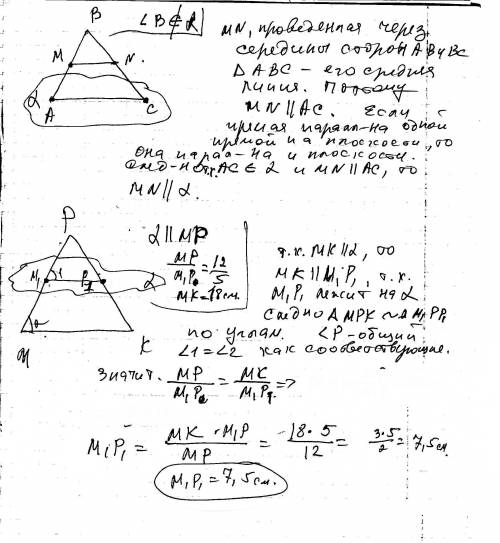 B
∠B∉α
M
N.
α
A
C
MN, проведенная через
середины сторон AB и BC
ΔABC – его средняя
линия. Поэтому
MN||AC. Если
прямая парал-на одной
прямой на плоскости, то
она парал-на и плоскости.
след-но т.к. AC∈α и MN||AC, то
MN||α.
P
M₁
1
α
2
M
K
α||MP
MP/M₁P = 12/5
MK=18см.
т.к. MK||α, то
MK||M₁P₁, т.к.
M₁P₁ лежит на α
следно ΔMPK ~ Δ M₁PP₁
по углам. ∠P-общий
∠1=∠2 как соответствующие.
Значит. MP/M₁P = MK/M₁P₁ =>
M₁P₁ = MK·M₁P/MP = 18·5/12 = 3·5/2 = 7,5см.
M₁P₁ = 7,5см.